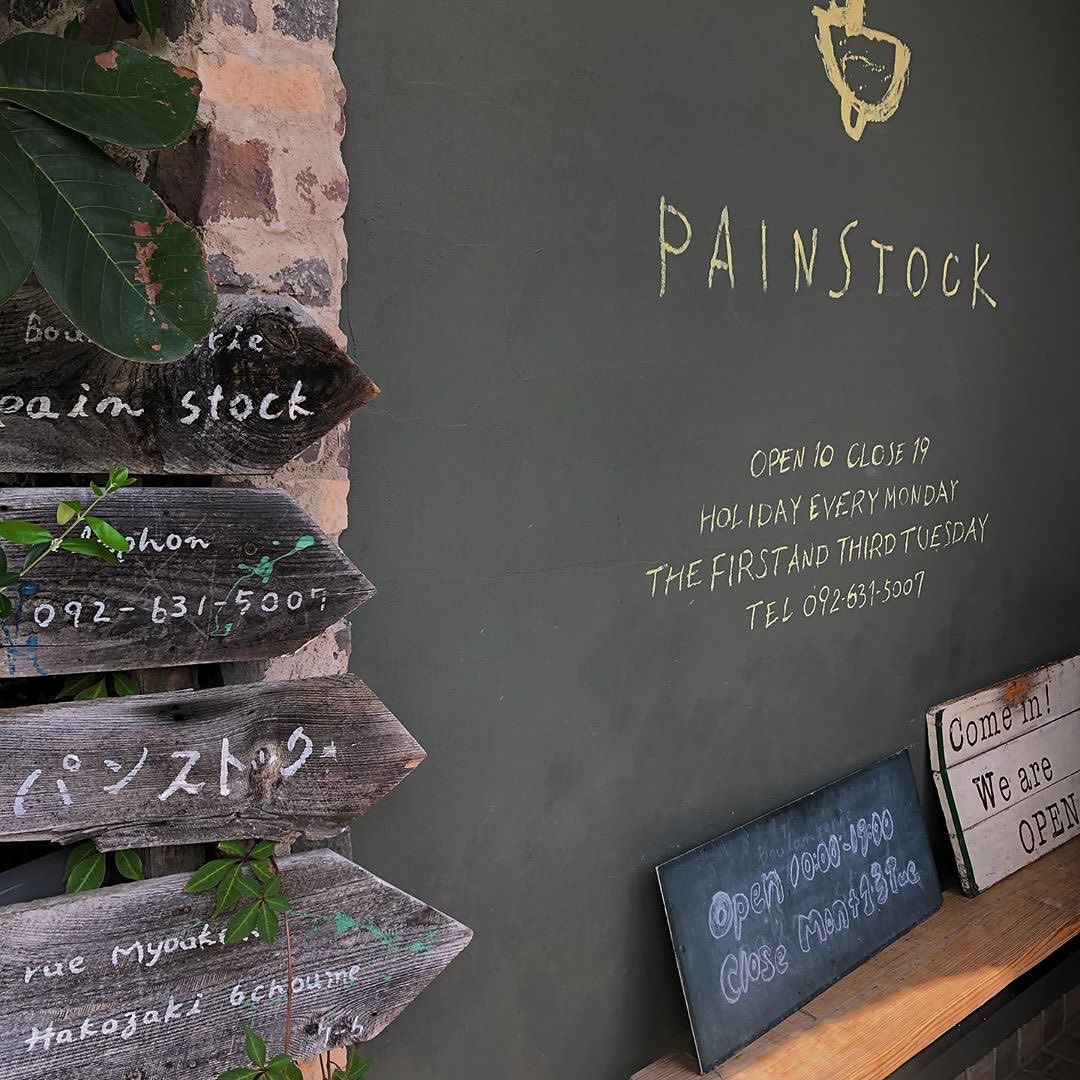 pain stock
092-631-5007
パンストック
rue
Hakozaki 6choume
PAINSTOCK
OPEN 10 CLOSE 19
HOLIDAY EVERY MONDAY
THE FIRST AND THIRD TUESDAY
TEL 092-631-5007
Open 10:00-19:00
Close Mon+1.3Tue
Come in!
We are
OPEN